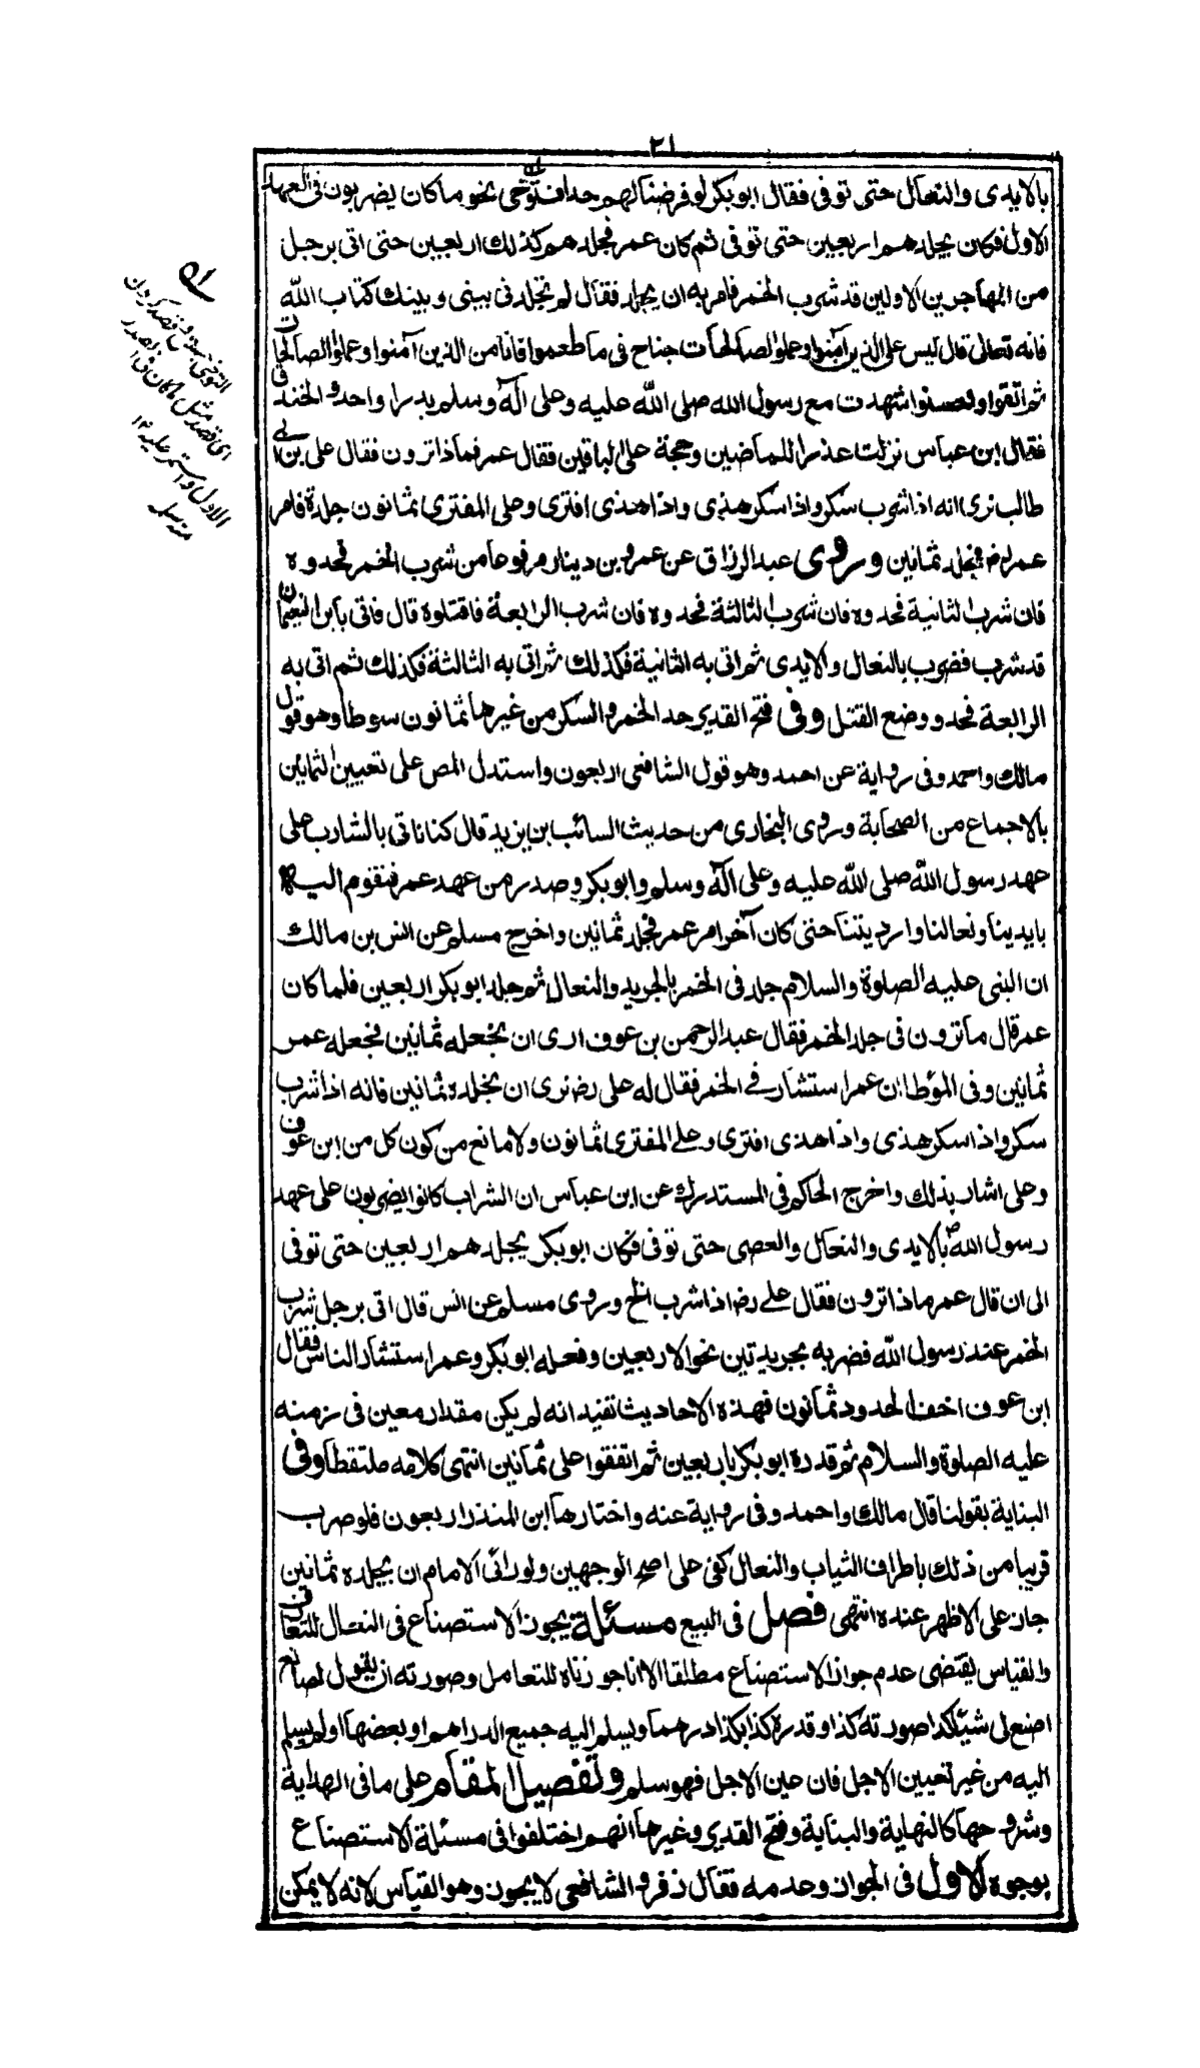 ٢١
بالايدى والنعال حتى توفى فقال ابوبكر لو فرضنا لهم حدا فتوخى نحو ما كان يضربون فى العهد
الاول فكان يجلدهم اربعين حتى توفى ثم كان عمر فجلدهم كذلك اربعين حتى اتى برجل
من المهاجرين الاولين قد شرب الخمر فامر به ان يجلد فقال لم تجلدنى بينى وبينك كتاب الله
فانه تعالى قال ليس على الذين آمنوا وعملوا الصالحات جناح فى ما طعموا فانا من الذين آمنوا وعملوا الصالحات
ثم اتقوا واحسنوا شهدت مع رسول الله صلى الله عليه وعلى آله وسلم بدرا واحد والخندق
فقال ابن عباس نزلت عذرا للماضين وحجة على الباقين فقال عمر فماذا ترون فقال على بن ابى
طالب نرى انه اذا شرب سكر واذا سكر هذى واذا هذى افترى وعلى المفترى ثمانون جلدة فامر
عمر رض فجلد ثمانين وروى عبد الرزاق عن عمرو بن دينار مرفوعا من شرب الخمر فحدوه
فان شرب الثانية فحدوه فان شرب الثالثة فحدوه فان شرب الرابعة فاقتلوه قال فاتى بابن النعيمان
قد شرب فضرب بالنعال والايدى ثم اتى به الثانية فكذلك ثم اتى به الثالثة فكذلك ثم اتى به
الرابعة فحد ووضع القتل وفى فتح القدير حد الخمر والسكر من غيرها ثمانون سوطا وهو قول
مالك واحمد وفى رواية عن احمد وهو قول الشافعى اربعون واستدل المص على تعيين الثمانين
بالاجماع من الصحابة وروى البخارى من حديث السائب بن يزيد قال كنا ناتى بالشارب على
عهد رسول الله صلى الله عليه وعلى آله وسلم وابوبكر وصدر من عهد عمر فنقوم اليه
بايدينا ونعالنا وارديتنا حتى كان آخر امر عمر فجلد ثمانين واخرج مسلم عن انس بن مالك
ان النبى عليه الصلوة والسلام جلد فى الخمر بالجريد والنعال ثم جلد ابوبكر اربعين فلما كان
عمر قال ما ترون فى جلد الخمر فقال عبد الرحمن بن عوف ارى ان تجعله ثمانين فجعله عمر
ثمانين وفى المؤطا ان عمر استشار فى الخمر فقال له على رض نرى ان تجلده ثمانين فانه اذا شرب
سكر واذا سكر هذى واذا هذى افترى وعلى المفترى ثمانون ولا مانع من كون كل من ابن عوف
وعلى اشار بذلك واخرج الحاكم فى المستدرك عن ابن عباس ان الشراب كانوا يضربون على عهد
رسول الله ص بالايدى والنعال والعصى حتى توفى فكان ابوبكر يجلدهم اربعين حتى توفى
الى ان قال عمر ماذا ترون فقال على رض اذا شرب الخ وروى مسلم عن انس قال اتى برجل شرب
الخمر عند رسول الله فضربه بجريدتين نحو الاربعين وفعله ابوبكر وعمر استشار الناس فقال
ابن عوف اخف الحدود ثمانون فهذه الاحاديث تفيد انه لم يكن مقدار معين فى زمنه
عليه الصلوة والسلام ثم قدره ابوبكر باربعين ثم اتفقوا على ثمانين انتهى كلامه ملتقطا وفى
البناية بقولنا قال مالك واحمد وفى رواية عنه واختارها ابن المنذر اربعون فلو ضرب
قريبا من ذلك باطراف الثياب والنعال كفى على اصح الوجهين ولو رائى الامام ان يجلده ثمانين
جاز على الاظهر عنده انتهى فصل فى البيع مسئلة يجوز الاستصناع فى النعال للتعامل
والقياس يقتضى عدم جواز الاستصناع مطلقا الا انا جوزناه للتعامل وصورته ان يقول لصانع
اصنع لى شيئا كذا صورته كذا وقدره كذا بكذا درهما ويسلم اليه جميع الدراهم او بعضها او لم يسلم
اليه من غير تعيين الاجل فان عين الاجل فهو سلم وتفصيل المقام على ما فى الهداية
وشروحها كالنهاية والبناية وفتح القدير وغيرها انهم اختلفوا فى مسئلة الاستصناع
بوجوه الاول فى الجواز وعدمه فقال زفر والشافعى لا يجوز وهو القياس لانه لا يمكن
اى قصد مثل ما كان فى الصدر
الاول واستمر عليه ١٢
منه سلمه